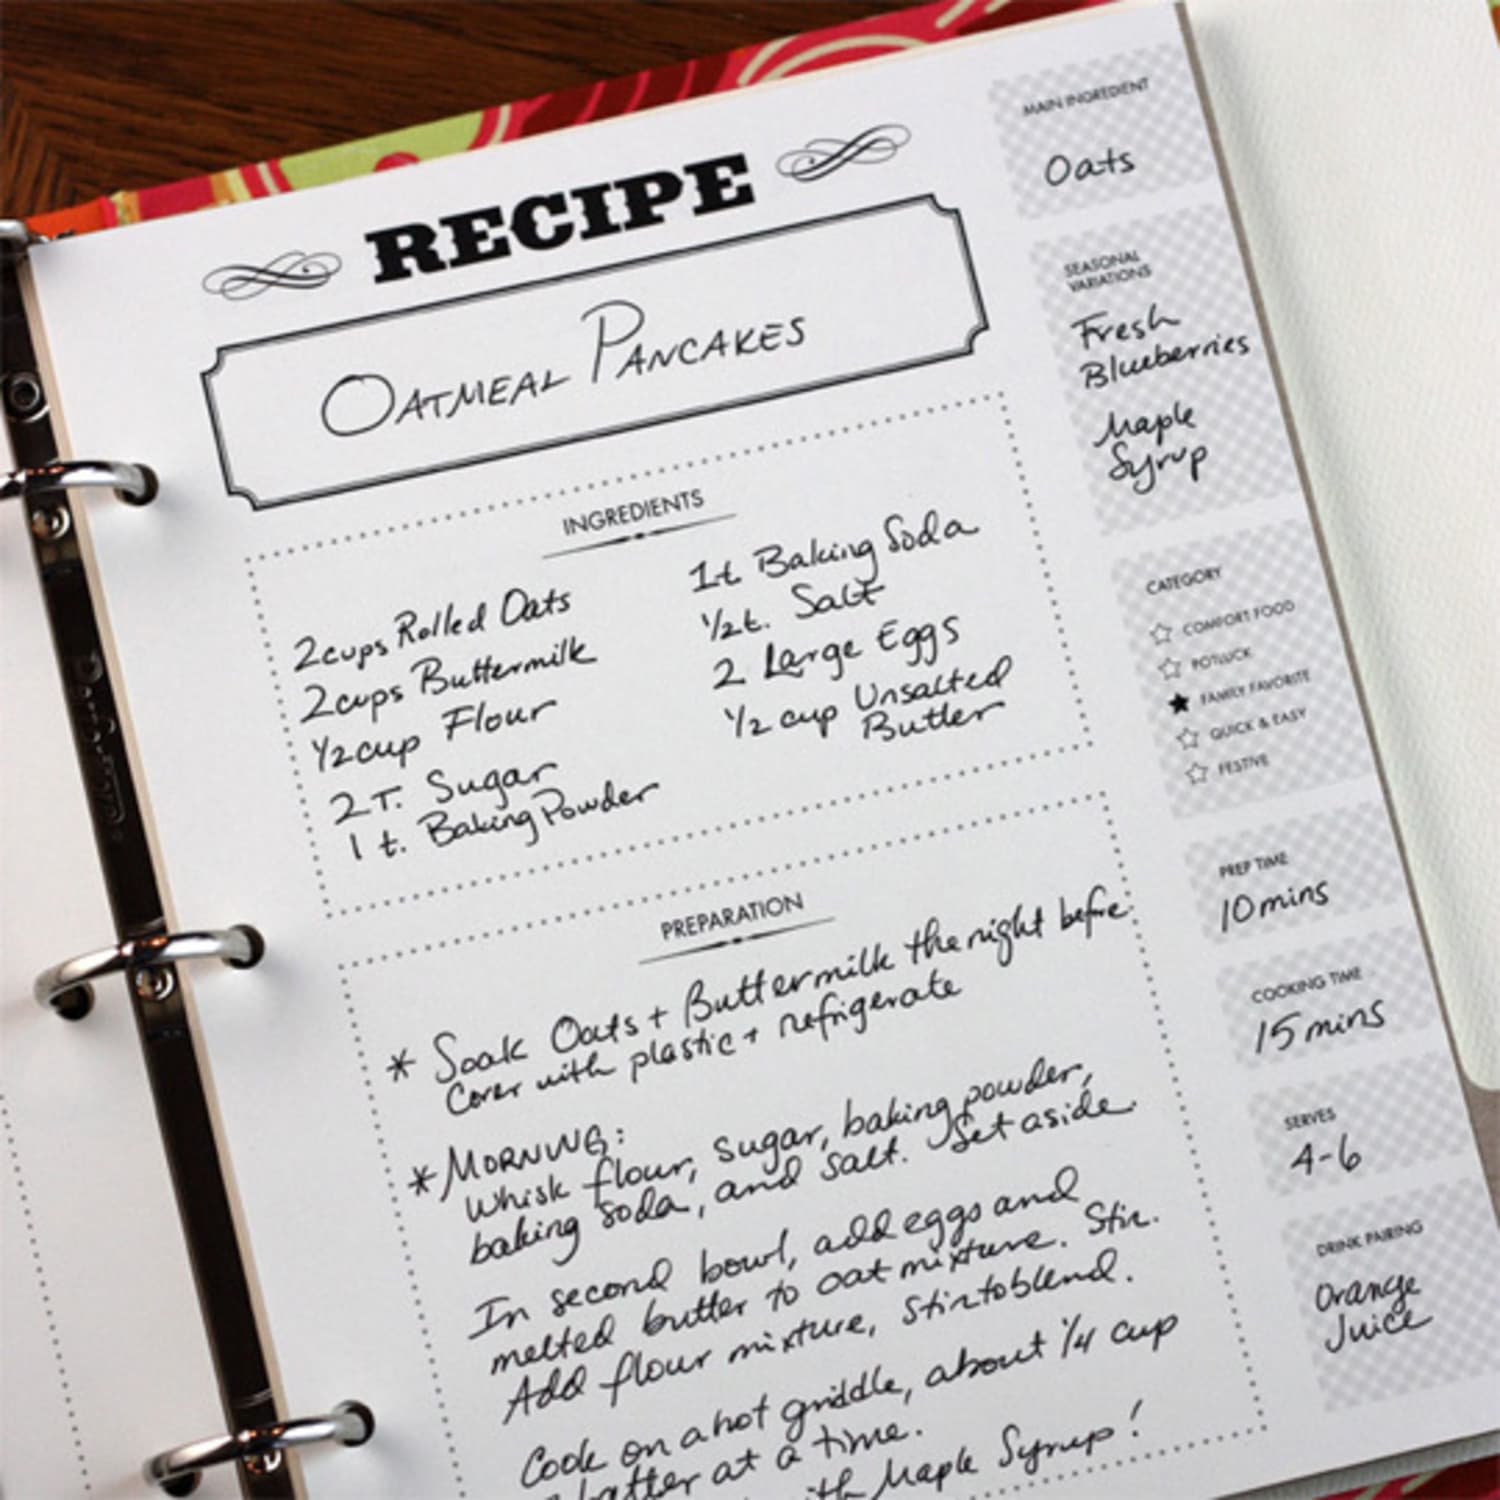 RECIPE
OATMEAL PANCAKES
INGREDIENTS
2 cups Rolled Oats
2 cups Buttermilk
1/2 cup Flour
2 T. Sugar
1 t. Baking Powder
1t. Baking Soda
1/2 t. Salt
2 Large Eggs
1/2 cup Unsalted
Butter
PREPARATION
* Soak Oats + Buttermilk the night before
Cover with plastic + refrigerate
* MORNING:
Whisk flour, sugar, baking powder,
baking soda, and salt. Set aside.
In second bowl, add eggs and
melted butter to oat mixture. Stir.
Add flour mixture, stir to blend.
Cook on a hot griddle, about 1/4 cup
batter at a time.
Maple Syrup!
MAIN INGREDIENT
Oats
SEASONAL
VARIATIONS
Fresh
Blueberries
Maple
Syrup
CATEGORY
☆ COMFORT FOOD
☆ POTLUCK
★ FAMILY FAVORITE
☆ QUICK & EASY
☆ FESTIVE
PREP TIME
10 mins
COOKING TIME
15 mins
SERVES
4-6
DRINK PAIRING
Orange
Juice